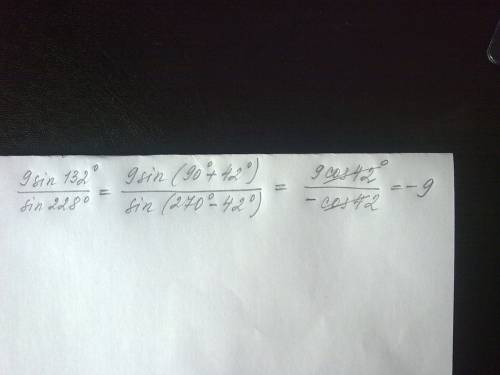 9sin 132° / sin 228° = 9sin (90° + 42°) / sin (270° - 42°) = 9cos42° / -cos42 = -9